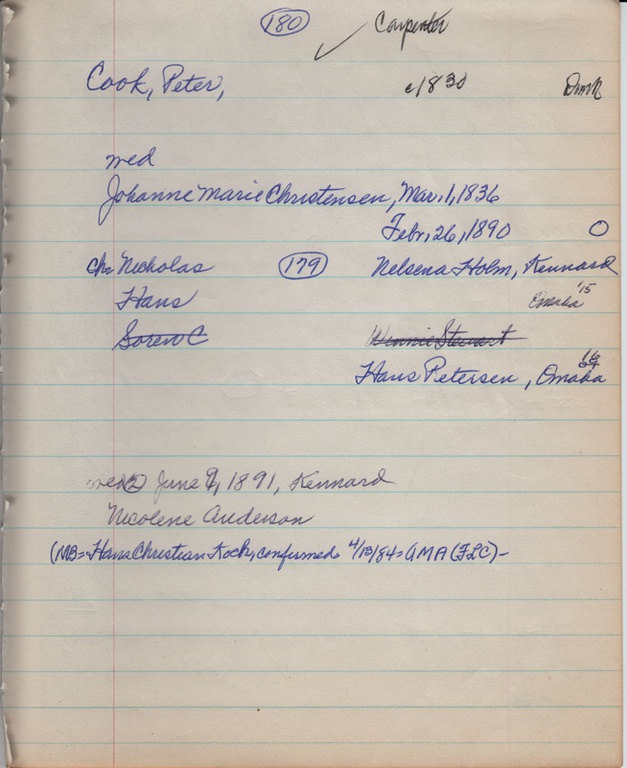 180 Carpenter
Cook, Peter, c1830 Dmk
wed
Johanne Marie Christensen, Mar. 1, 1836
Febr, 26, 1890 O
ch: Nicholas 179 Nelsena Holm, Kennard
Hans Omaha '15
Soren C Winnie Stewart
Hans Petersen, Omaha
wed 2 June 9, 1891, Kennard
Nicolene Anderson
(MB = Hans Christian Koch, confirmed 4/13/84 = AMA (FLC) -